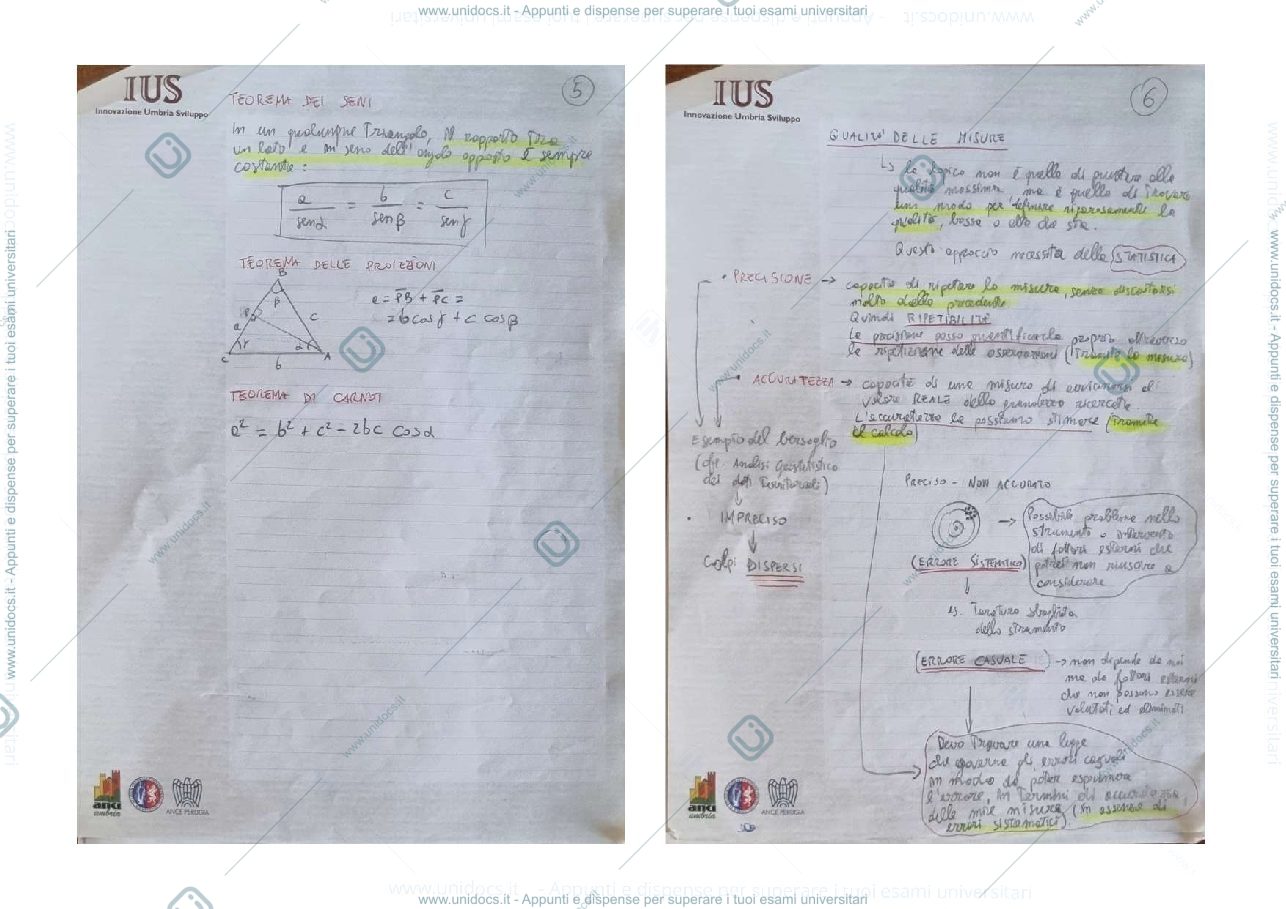 www.unidocs.it - Appunti e dispense per superare i tuoi esami universitari
IUS
Innovazione Umbria Sviluppo
5
TEOREMA DEI SENI
In un qualunque Triangolo, il rapporto Tra
un lato e il seno dell'angolo opposto è sempre
costante :
a/senα = b/senβ = c/senγ
TEOREMA DELLE PROIEZIONI
B
β
P
a
c
C
γ
α
A
b
a = PB + PC =
= b cosγ + c cosβ
TEOREMA DI CARNOT
a² = b² + c² - 2bc cosα
anci
umbria
ANCE PERUGIA
IUS
Innovazione Umbria Sviluppo
6
QUALITA' DELLE MISURE
↳ La logica non è quella di puntare alla
qualità massima ma è quella di Trovare
un modo per definire rigorosamente la
qualità, bassa o alta che sia.
Questo approccio necessita della STATISTICA
• PRECISIONE → capacità di ripetere la misura, senza discostarsi
molto dalla precedente
Quindi RIPETIBILITÀ
La precisione posso quantificarla proprio attraverso
la ripetizione delle osservazioni (Tramite la misura)
• ACCURATEZZA → capacità di una misura di avvicinarsi al
valore REALE della grandezza ricercata
L'accuratezza la possiamo stimare (Tramite
il calcolo)
Esempio del bersaglio
(di Analisi Geostatistica
dei dati Territoriali)
↓
• IMPRECISO
↓
Colpi DISPERSI
PRECISO - NON ACCURATO
→ Possibile problema nello
strumento o intervento
di fattori esterni che
potrei non riuscire a
considerare
(ERRORE SISTEMATICO)
↓
es. Taratura sbagliata
dello strumento
(ERRORE CASUALE) → non dipende da noi
ma da fattori esterni
che non possono essere
valutati ed eliminati
Devo Trovare una legge
che governa gli errori casuali
in modo da poter esprimere
l'errore, in Termini di accuratezza,
delle mie misure (in assenza di
errori sistematici)
anci
umbria
ANCE PERUGIA
www.unidocs.it - Appunti e dispense per superare i tuoi esami universitari